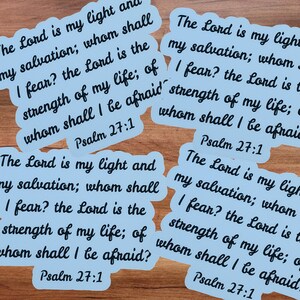 The Lord is my light and
my salvation; whom shall
I fear? the Lord is the
strength of my life; of
whom shall I be afraid?
Psalm 27:1
The Lord is my light
my salvation; whom
I fear? the Lord is the
strength of my life;
whom shall I be afraid
Psalm 27:1
The Lord is my light and
my salvation; whom shall
I fear? the Lord is the
strength of my life; of
whom shall I be afraid?
Psalm 27:1
The Lord is my light
my salvation; whom
I fear? the Lord is
strength of my life;
whom shall I be afraid
Psalm 27:1